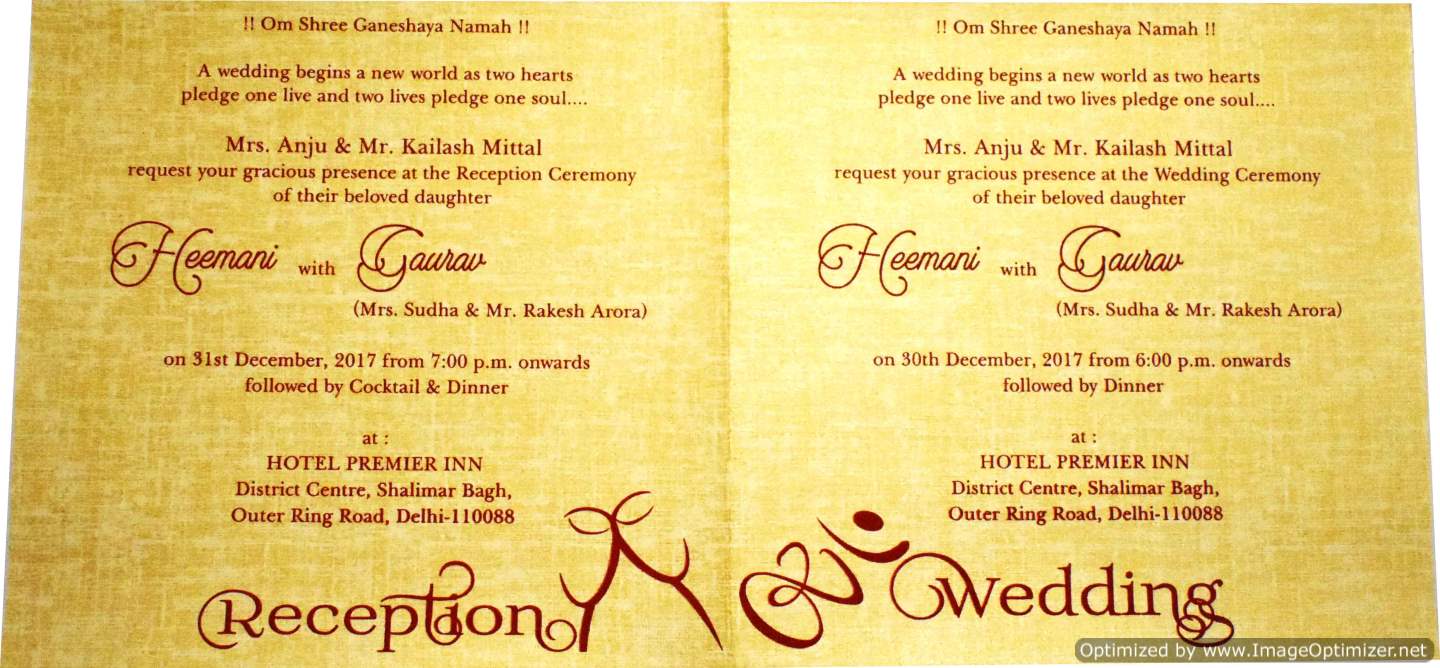 !! Om Shree Ganeshaya Namah !!
A wedding begins a new world as two hearts
pledge one live and two lives pledge one soul....
Mrs. Anju & Mr. Kailash Mittal
request your gracious presence at the Reception Ceremony
of their beloved daughter
Heemani with Gaurav
(Mrs. Sudha & Mr. Rakesh Arora)
on 31st December, 2017 from 7:00 p.m. onwards
followed by Cocktail & Dinner
at :
HOTEL PREMIER INN
District Centre, Shalimar Bagh,
Outer Ring Road, Delhi-110088
Reception
!! Om Shree Ganeshaya Namah !!
A wedding begins a new world as two hearts
pledge one live and two lives pledge one soul....
Mrs. Anju & Mr. Kailash Mittal
request your gracious presence at the Wedding Ceremony
of their beloved daughter
Heemani with Gaurav
(Mrs. Sudha & Mr. Rakesh Arora)
on 30th December, 2017 from 6:00 p.m. onwards
followed by Dinner
at :
HOTEL PREMIER INN
District Centre, Shalimar Bagh,
Outer Ring Road, Delhi-110088
Wedding
Optimized by www.ImageOptimizer.net